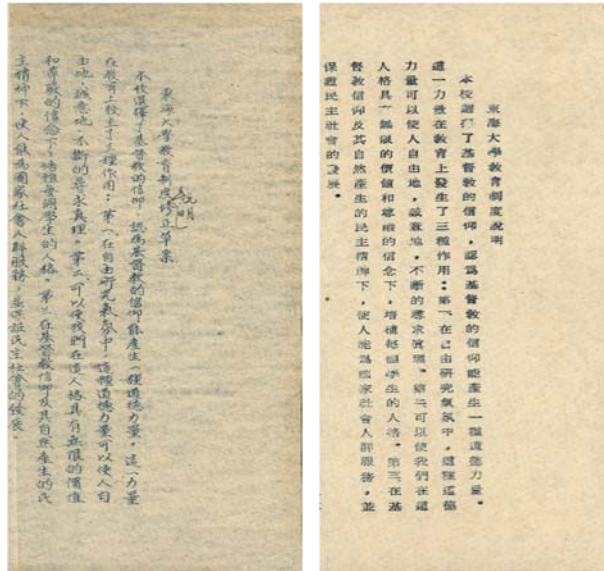 東海大學教育制度修正草案
說明
本校選擇了基督教的信仰，認為基督教的信仰能產生一種道德力量。這一力量
在教育上發生了三種作用：第一、在自由研究氣氛中，這種道德力量可以使人自
由地，誠意地，不斷的尋求真理。第二、可以使我們在這人格具有無限的價值
和尊嚴的信念下，培植每個學生的人格。第三、在基督教信仰及其自然產生的民
主精神下，使人能為國家社會人群服務，並保証民主社會的發展。
東海大學教育制度說明
本校選擇了基督教的信仰，認爲基督教的信仰能產生一種道德力量。
這一力量在教育上發生了三種作用：第一、在自由研究氣氛中，這種道德
力量可以使人自由地，誠意地，不斷的尋求眞理。第二可以使我們在這
人格具有無限的價值和尊嚴的信念下，培植每個學生的人格。第三在基
督教信仰及其自然產生的民主精神下，使人能爲國家社會人群服務，並
保證民主社會的發展。